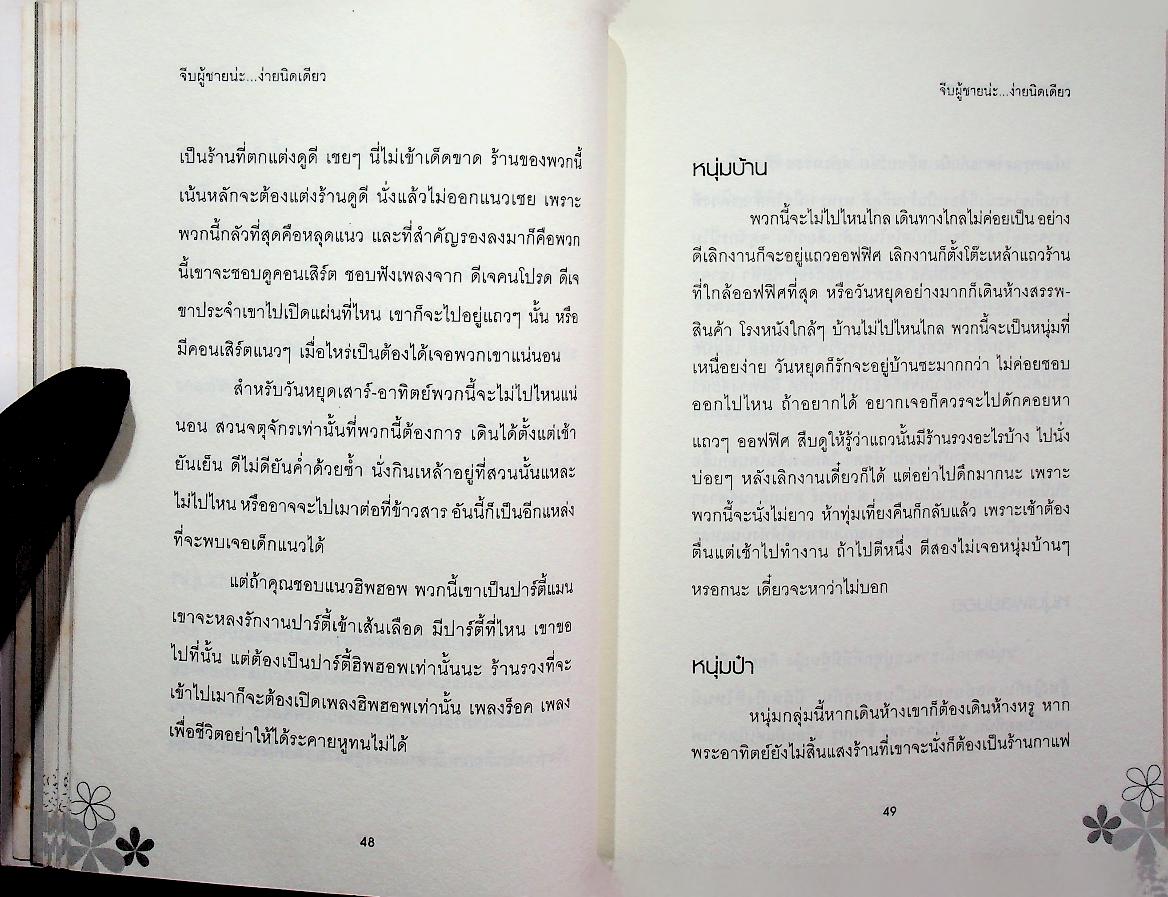 จีบผู้ชายน่ะ...ง่ายนิดเดียว
เป็นร้านที่ตกแต่งดูดี เชยๆ นี่ไม่เข้าเด็ดขาด ร้านของพวกนี้
เน้นหลักจะต้องแต่งร้านดูดี นั่งแล้วไม่ออกแนวเชย เพราะ
พวกนี้กลัวที่สุดคือหลุดแนว และที่สำคัญรองลงมาก็คือพวก
นี้เขาจะชอบดูคอนเสิร์ต ชอบฟังเพลงจาก ดีเจคนโปรด ดีเจ
ขาประจำเขาไปเปิดแผ่นที่ไหน เขาก็จะไปอยู่แถวๆ นั้น หรือ
มีคอนเสิร์ตแนวๆ เมื่อไหร่เป็นต้องได้เจอพวกเขาแน่นอน
สำหรับวันหยุดเสาร์-อาทิตย์พวกนี้จะไม่ไปไหนแน่
นอน สวนจตุจักรเท่านั้นที่พวกนี้ต้องการ เดินได้ตั้งแต่เช้า
ยันเย็น ดีไม่ดียันค่ำด้วยซ้ำ นั่งกินเหล้าอยู่ที่สวนนั้นแหละ
ไม่ไปไหน หรืออาจจะไปเมาต่อที่ข้าวสาร อันนี้ก็เป็นอีกแหล่ง
ที่จะพบเจอเด็กแนวได้
แต่ถ้าคุณชอบแนวฮิพฮอพ พวกนี้เขาเป็นปาร์ตี้แมน
เขาจะหลงรักงานปาร์ตี้เข้าเส้นเลือด มีปาร์ตี้ที่ไหน เขาขอ
ไปที่นั้น แต่ต้องเป็นปาร์ตี้ฮิพฮอพเท่านั้นนะ ร้านรวงที่จะ
เข้าไปเมาก็จะต้องเปิดเพลงฮิพฮอพเท่านั้น เพลงร็อค เพลง
เพื่อชีวิตอย่าให้ได้ระคายหูทนไม่ได้
48
จีบผู้ชายน่ะ...ง่ายนิดเดียว
หนุ่มบ้าน
พวกนี้จะไม่ไปไหนไกล เดินทางไกลไม่ค่อยเป็น อย่าง
ดีเลิกงานก็จะอยู่แถวออฟฟิศ เลิกงานก็ตั้งโต๊ะเหล้าแถวร้าน
ที่ใกล้ออฟฟิศที่สุด หรือวันหยุดอย่างมากก็เดินห้างสรรพ-
สินค้า โรงหนังใกล้ๆ บ้านไม่ไปไหนไกล พวกนี้จะเป็นหนุ่มที่
เหนื่อยง่าย วันหยุดก็รักจะอยู่บ้านซะมากกว่า ไม่ค่อยชอบ
ออกไปไหน ถ้าอยากได้ อยากเจอก็ควรจะไปดักคอยหา
แถวๆ ออฟฟิศ สืบดูให้รู้ว่าแถวนั้นมีร้านรวงอะไรบ้าง ไปนั่ง
บ่อยๆ หลังเลิกงานเดี๋ยวก็ได้ แต่อย่าไปดึกมากนะ เพราะ
พวกนี้จะนั่งไม่ยาว ห้าทุ่มเที่ยงคืนก็กลับแล้ว เพราะเช้าต้อง
ตื่นแต่เช้าไปทำงาน ถ้าไปตีหนึ่ง ตีสองไม่เจอหนุ่มบ้านๆ
หรอกนะ เดี๋ยวจะหาว่าไม่บอก
หนุ่มป๋า
หนุ่มกลุ่มนี้หากเดินห้างเขาก็ต้องเดินห้างหรู หาก
พระอาทิตย์ยังไม่สิ้นแสงร้านที่เขาจะนั่งก็ต้องเป็นร้านกาแฟ
49